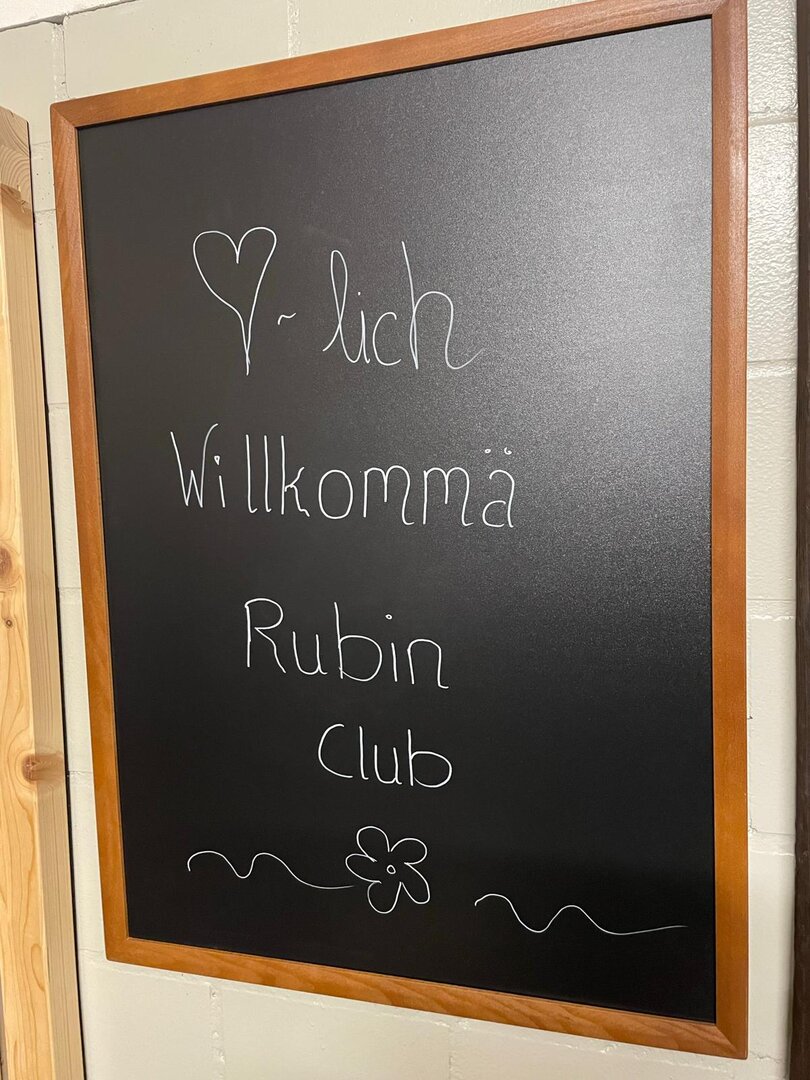 ♡-lich
Willkommä
Rubin
Club